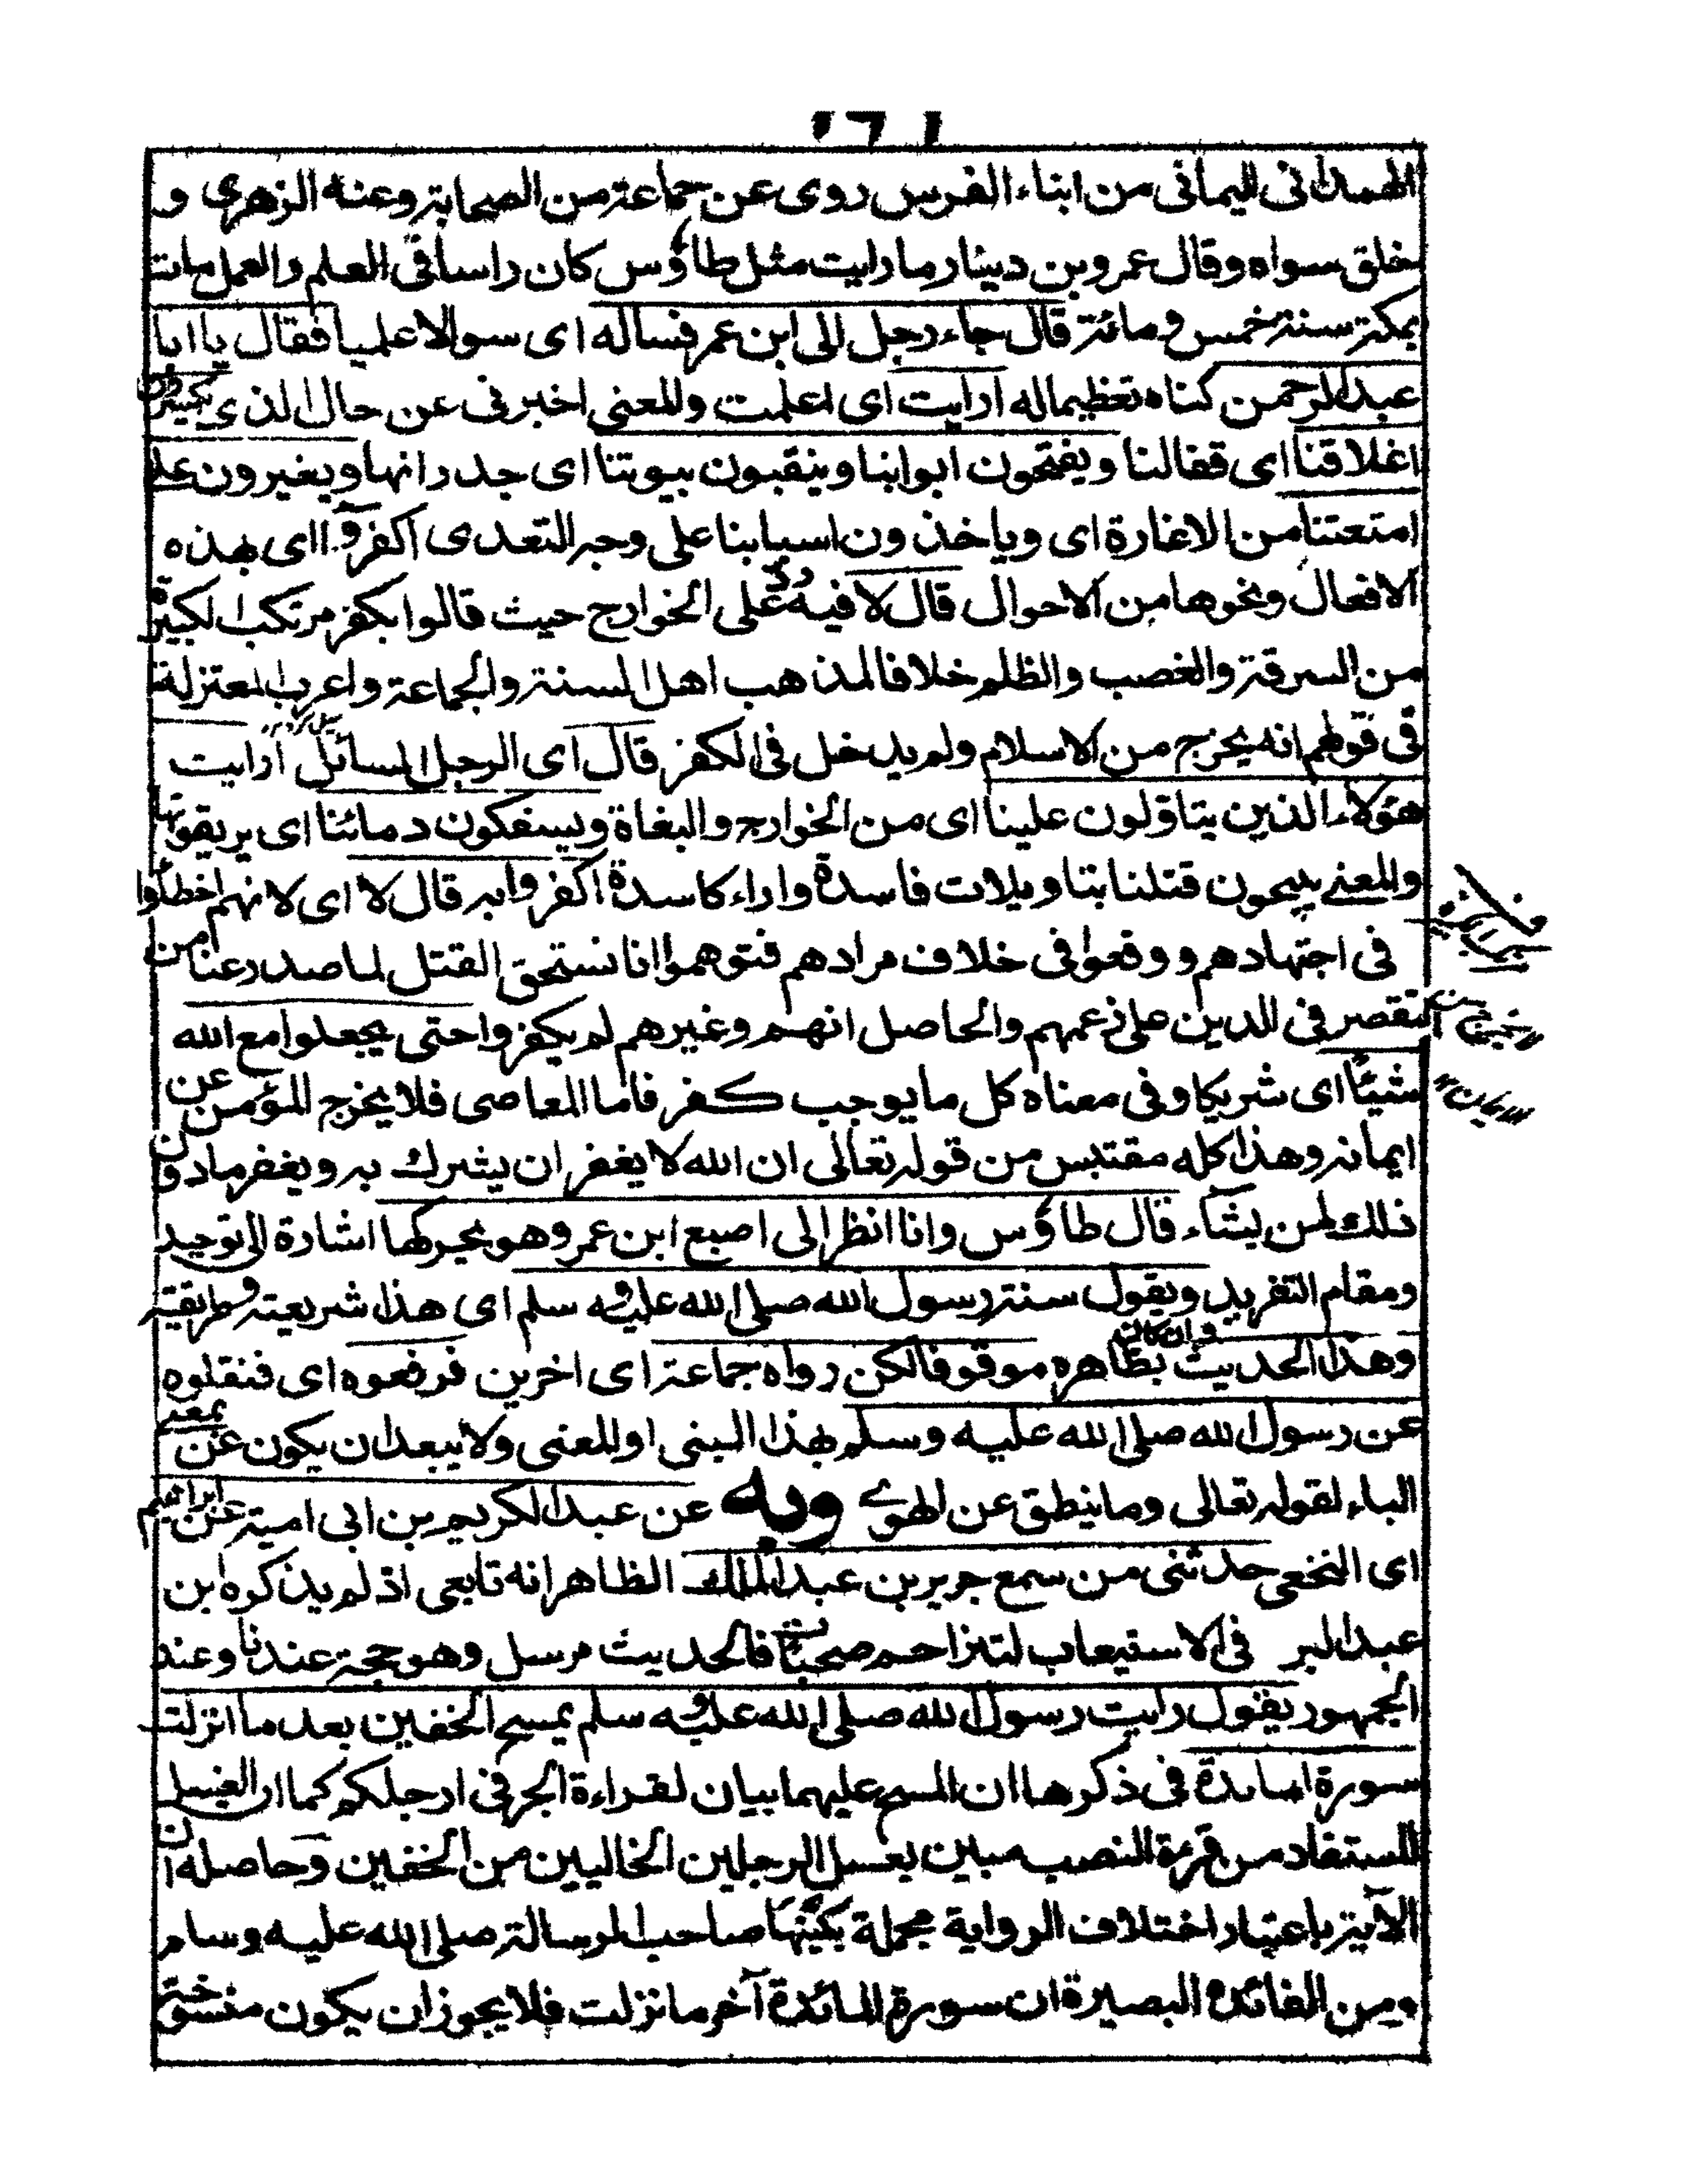 الهمدانى اليمانى من ابناء الفرس روى عن جماعة من الصحابة وعنه الزهرى و
خلق سواه وقال عمرو بن دينار ما رايت مثل طاؤس كان راسا فى العلم والعمل مات
بمكة سنة خمس ومائة قال جاء رجل الى ابن عمر فساله اى سوالا علميا فقال يا ابا
عبد الرحمن كناه تعظيما له ارايت اى اعلمت والمعنى اخبرنى عن حال الذى يكسرون
اغلاقنا اى قفالنا ويفتحون ابوابنا وينقبون بيوتنا اى جدرانها ويغيرون على
امتعتنا من الاغارة اى وياخذون اسبابنا على وجه التعدى اكفروا اى بهذه
الافعال ونحوها من الاحوال قال لا فيه رد على الخوارج حيث قالوا بكفر مرتكب الكبيرة
من السرقة والغصب والظلم خلافا لمذهب اهل السنة والجماعة واعرب المعتزلة
فى قولهم انه يخرج من الاسلام ولم يدخل فى الكفر قال اى الرجل السائل ارايت
هؤلاء الذين يتاولون علينا اى من الخوارج والبغاة ويسفكون دمائنا اى يريقونها
والمعنى يبيحون قتلنا بتاويلات فاسدة واراء كاسدة اكفروا به قال لا اى لانهم اخطاوا
فى اجتهادهم ووقعوا فى خلاف مرادهم فتوهموا انا نستحق القتل لما صدر عنا من
تقصر فى الدين على زعمهم والحاصل انهم وغيرهم لم يكفروا حتى يجعلوا مع الله
شيئا اى شريكا وفى معناه كل ما يوجب كفر فاما المعاصى فلا يخرج المؤمن عن
ايمانه وهذا كله مقتبس من قوله تعالى ان الله لا يغفر ان يشرك به ويغفر ما دون
ذلك لمن يشاء قال طاؤس وانا انظر الى اصبع ابن عمر وهو يحركها اشارة الى توحيد
ومقام التفريد ويقول سنة رسول الله صلى الله عليه و سلم اى هذا شريعته وطريقته
وهذا الحديث وان كان بظاهره موقوفا لكن رواه جماعة اى اخرين فرفعوه اى فنقلوه
عن رسول الله صلى الله عليه وسلم بهذا المبنى او المعنى ولا يبعد ان يكون عن بمعنى
الباء لقوله تعالى وما ينطق عن الهوى وبه عن عبد الكريم بن ابى امية عن ابراهيم
اى النخعى حدثنى من سمع جرير بن عبد الملك الظاهر انه تابعى اذ لم يذكره ابن
عبد البر فى الاستيعاب فالحديث مرسل وهو حجة عندنا وعند
الجمهور يقول رايت رسول الله صلى الله عليه و سلم يمسح الخفين بعد ما انزلت
سورة المائدة فى ذكرها ان المسح عليهما بيان لقراءة الجر فى ارجلكم كما ان الغسل
المستفاد من قرءة النصب مبين بغسل الرجلين الخاليين من الخفين وحاصله ان
الآية باعتبار اختلاف الرواية مجملة صاحب الرسالة صلى الله عليه وسلم
ومن الفائدة البصيرة ان سورة المائدة آخر ما نزلت فلا يجوز ان يكون